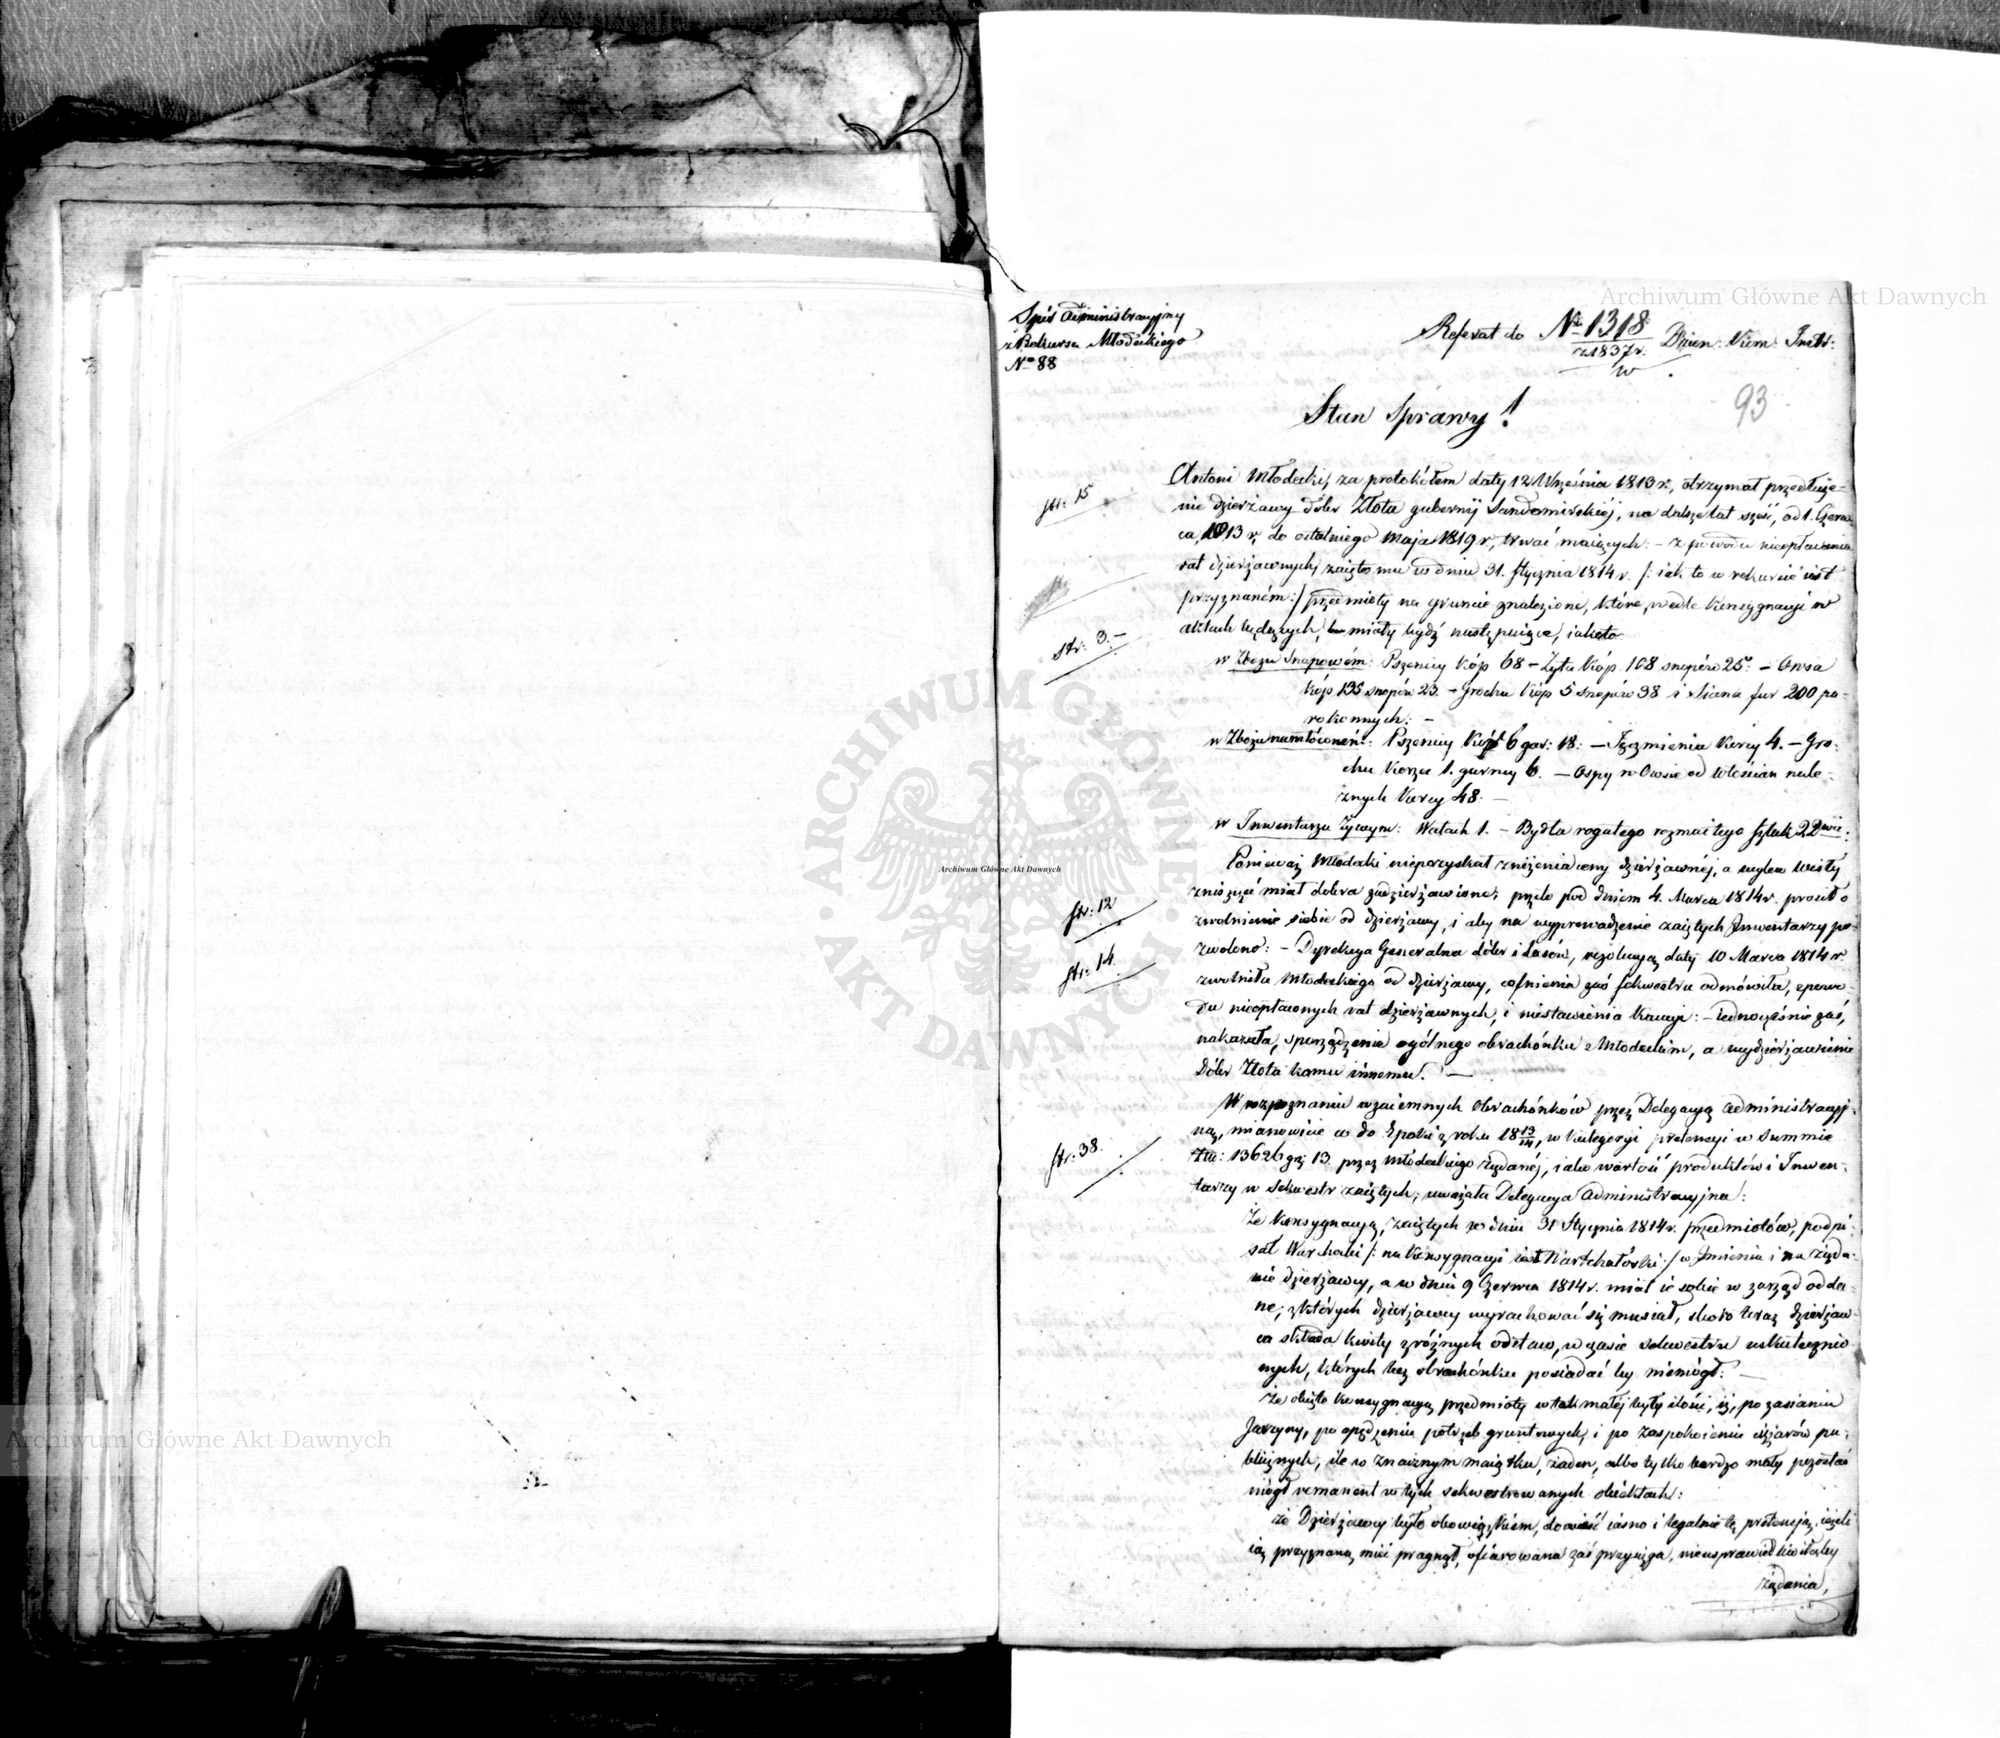 Spór Administracyjny
z Rekursu Młodeckiego
No 88
Referat do No 1318 Dzien: Kom: Instr:
z 1837 r.
w
93
Stan Sprawy!
str: 15
Antoni Młodecki, za protokółem daty 12 Września 1813 r., otrzymał przedłuże-
nie dzierżawy dóbr Złota gubernij Sandomirskiéj, na dalsze lat sześć, od 1. Czerw-
ca, 1813 r. do ostatniego Maja 1819 r., trwać maiących: – z powodu nieopłacenia
rat dzierżawnych, zaięto mu w dniu 31. Stycznia 1814 r. /: iak to w rekursie iest
przyznaném :/ przedmioty na gruncie znalezione, które, wedle Konsygnacyi w
str: 3. –
aktach będących, miały bydź następuiące, iakoto
w Zbożu Snopowém: Pszenicy Kóp 68 – Żyta Kóp 108 snopów 25: – Owsa
Kóp 135 snopów 23. – Grochu Kóp 5 snopów 38 i Siana fur 200 pa-
rokonnych: –
w Zbożu namłóconém: Pszenicy 6 gar: 18: – Jęczmienia Korcy 4. – Gro-
chu Korzec 1. garncy 6. – Ospy w Owsie od Włościan nale-
żnych Korcy 48. –
w Inwentarzu Żywym: Wałach 1. – Bydła rogatego rozmaitego sztuk 22
Ponieważ Młodecki nieporzyskał zniżenia ceny dzierżawnéj, a wylew Wisły
zniszczyć miał dobra zadzierżawione; przeto pod dniem 4. Marca 1814 r. prosił o
str: 12
zwolnienie siebie od dzierżawy, i aby na wyprowadzenie zaiętych Inwentarzy po-
zwolono: – Dyrekcya Generalna dóbr i Lasów, rezolucyą daty 10 Marca 1814 r.
str: 14.
zwolniła Młodeckiego od dzierżawy, cofnienia zaś sekwestru odmówiła, z powo-
du nieopłaconych rat dzierżawnych, i niestawienia Kaucyi: – iednocześnie zaś,
nakazała, sporządzenie ogólnego obrachónku z Młodeckim, a wydzierżawienie
Dóbr Złota komu innemu. –
W rozpoznaniu wzaiemnych Obrachónków przez Delegacyą Administracyj-
ną, mianowicie co do Epoki z roku 18 13/14, w Kategoryi pretensyi w Summie
str: 38.
Złł: 13626 gr: 13. przez Młodeckiego żądanéj, iako wartość produktów i Inwen-
tarzy w Sekwestr zaiętych, uważała Delegacya Administracyjna:
Że Konsygnacyą, zaiętych w dniu 31 Stycznia 1814 r. przedmiotów, podpi-
sał /: na Konsygnacyi iest :/ w Imieniu i na żąda-
nie dzierżawcy, a w dniu 9 Czerwca 1814 r. miał ie sobie w zarząd odda-
ne, z których dzierżawcy wyrachować się musiał, skoro teraz dzierżaw-
ca składa kwity z różnych odstaw, w czasie sekwestru uskutecznio-
nych, których bez obrachónku posiadać by niemógł: –
że obięte konsygnacyą przedmioty w tak małéj były ilości, iż, po zasianiu
Jarzyny, po opędzeniu potrzeb gruntowych, i po zaspokoieniu ciężarów pu-
blicznych, ile w znacznym maiątku, żaden, albo tylko bardzo mały pozostać
mógł remanent w tych sekwestrowanych obiektach:
że Dzierżawcy było obowiązkiem, dowieść iasno i legalnie tę pretensyą, ieżeli
ią przyznaną mieć pragnął, ofiarowana zaś przysięga, nieusprawiedliwiłaby
żądania,